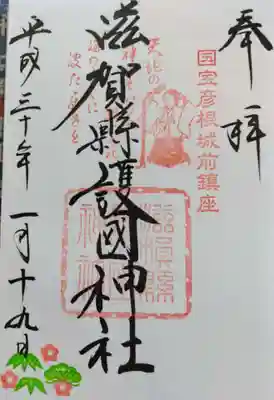 奉拝
国宝彦根城前鎮座
滋賀縣護國神社
滋賀縣
平成三十年 一月十九日